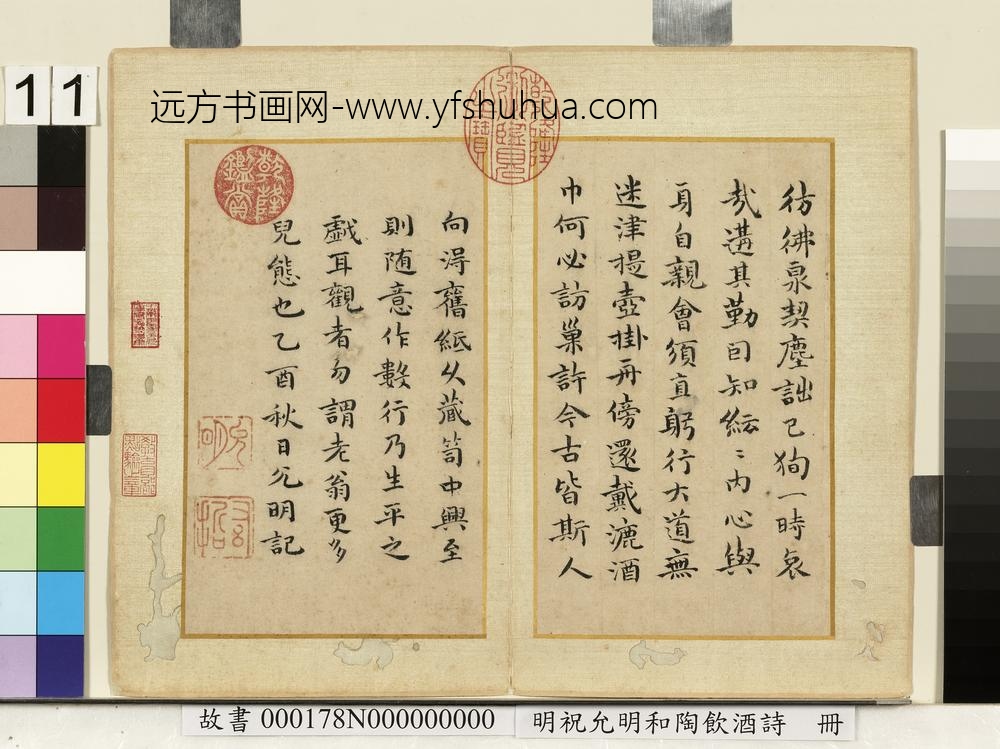 11
远方书画网-www.yfshuhua.com
彷彿泉契塵詘己狥一時哀
哉遘其勤囙知紜〻內心與
身自親會須直躬行大道無
迷津提壺掛舟傍還戴漉酒
巾何必訪巢許今古皆斯人
向得舊紙久藏笥中興至
則随意作數行乃生平之
戲耳觀者勿謂老翁更多
兒態也乙酉秋日允明記
乾隆鑑賞
故書 000178N000000000
明祝允明和陶飲酒詩 冊